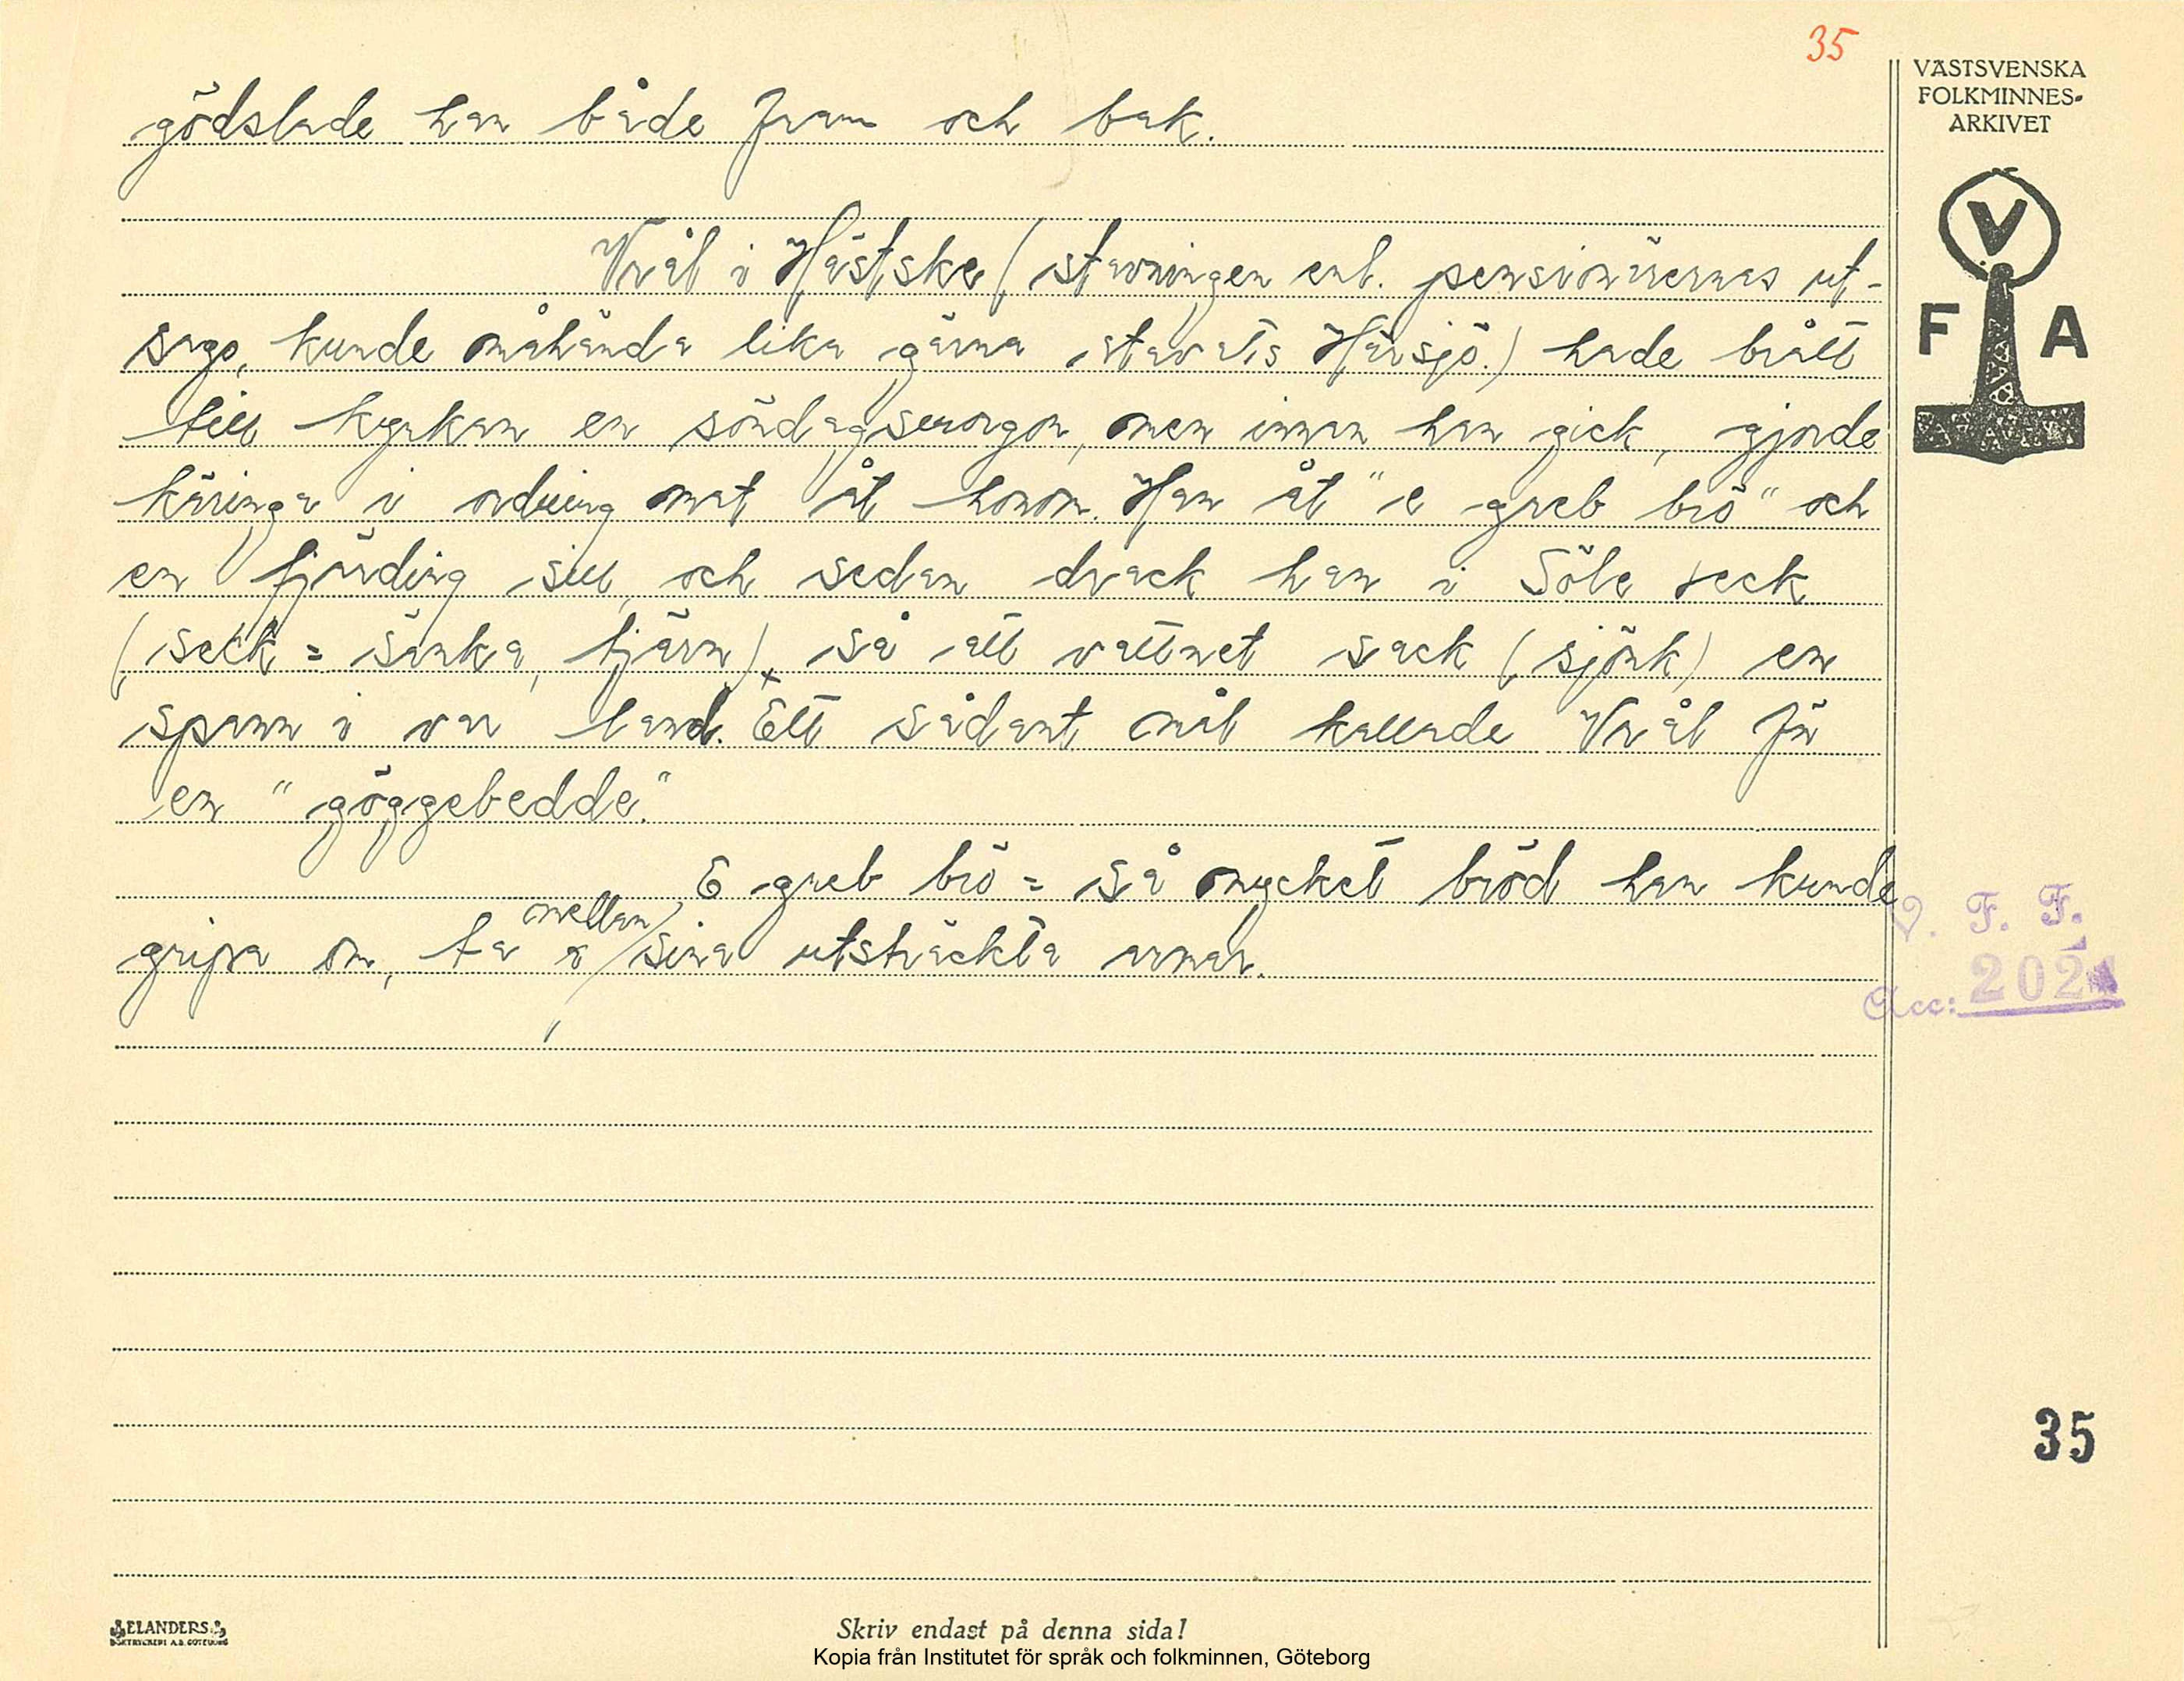 35
VÄSTSVENSKA
FOLKMINNES-
ARKIVET
V
F A
gödslade han både fram och bak.
Vrål i Hästske (stavningen enl. pensionärernas ut-
sago, kunde måhända lika gärna stavats Härsjö.) hade brått
till kyrkan en söndagsmorgon, men innan han gick, gjorde
käringa i ordning mat åt honom. Han åt "e greb brö" och
en fjärding sill, och sedan drack han i Söle seck
(seck = sänka, tjärn), så att vattnet sack (sjönk) en
spann i var land. Ett sådant mål kallade Vrål för
en "göggebedde."
E greb brö = så mycket bröd han kunde
mellan
gripa om, ta sina utsträckta armar.
V. F. F.
Acc: 202
35
ELANDERS
BOKTRYCKERI A.B. GÖTEBORG
Skriv endast på denna sida!
Kopia från Institutet för språk och folkminnen, Göteborg